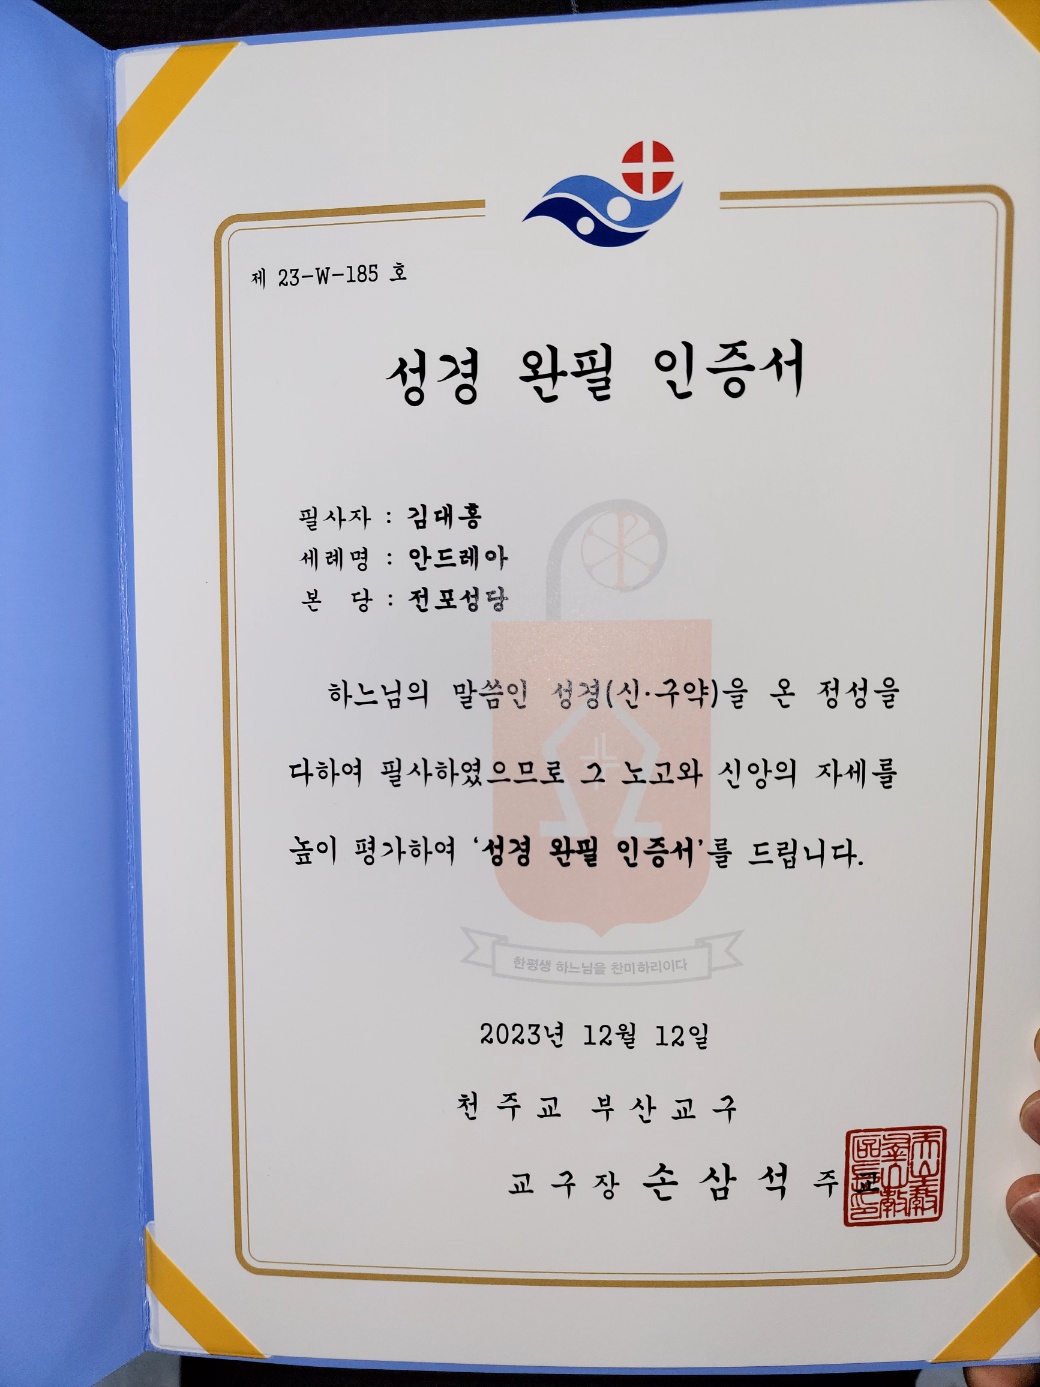 제 23-W-185 호
성경 완필 인증서
필사자 : 김대흥
세례명 : 안드레아
본 당 : 전포성당
하느님의 말씀인 성경(신·구약)을 온 정성을
다하여 필사하였으므로 그 노고와 신앙의 자세를
높이 평가하여 '성경 완필 인증서'를 드립니다.
한평생 하느님을 찬미하리이다
2023년 12월 12일
천주교 부산교구
교구장 손삼석 주교